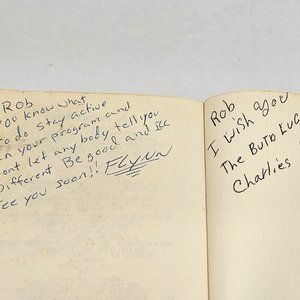 Rob
You know what
to do stay active
in your program and
dont let any body tell you
Different Be good and Ill
see you soon!! FLYNN
Rob
I wish you
The Buto Luc
Charlies